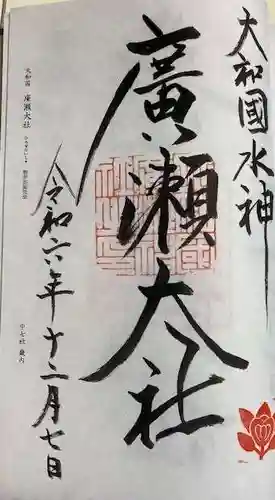 大和國水神
廣瀬大社
令和六年十二月七日
大和国 廣瀬大社
中七社 畿内